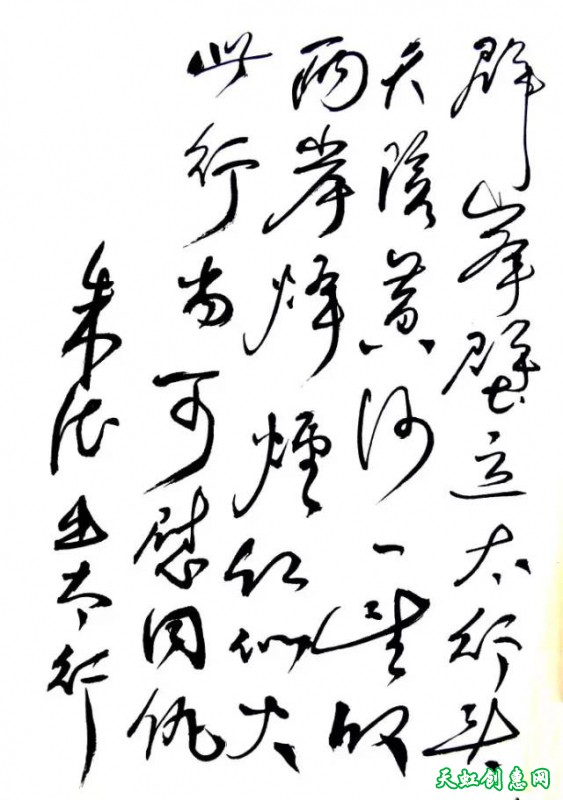 群峯壁立太行头
天险黄河一望收
两岸烽煙红似火
此行当可慰同仇
朱德出太行
天虹创惠网